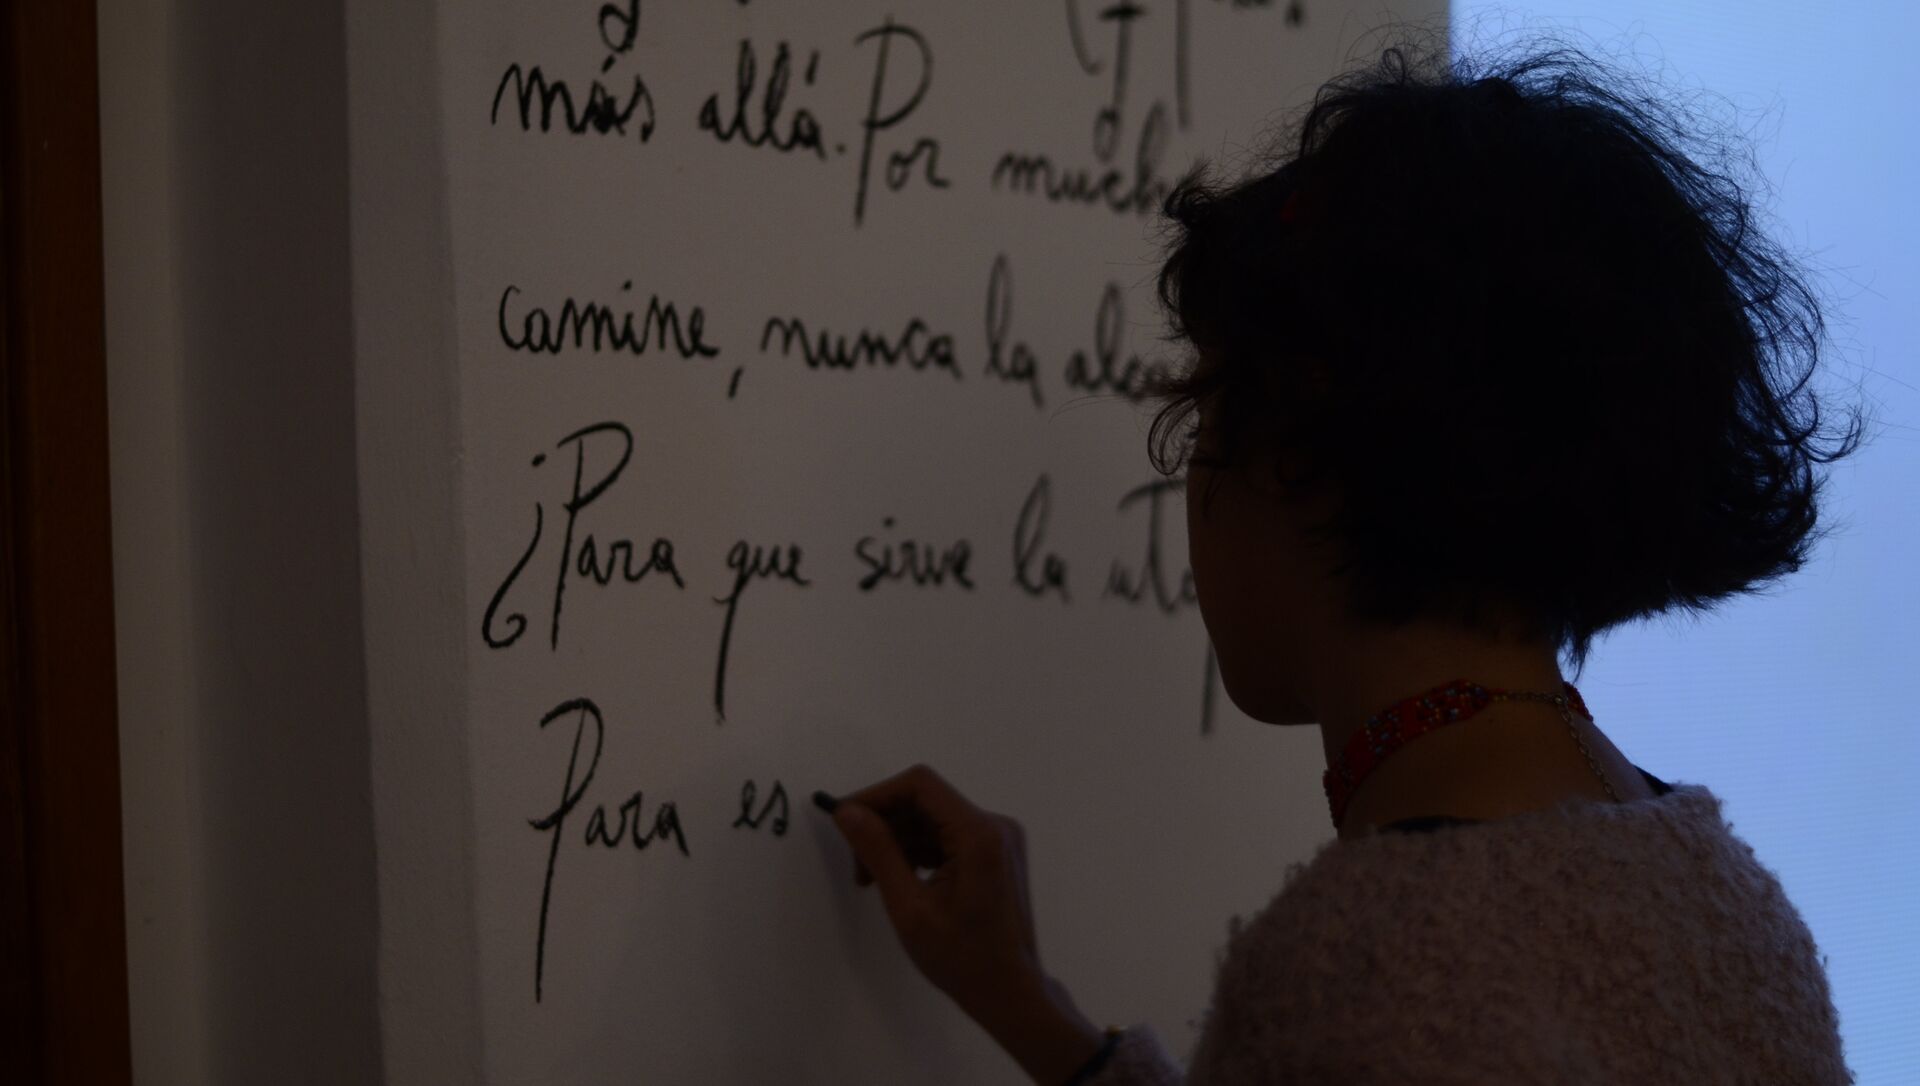 más allá. Por
camine, nunca la
¿Para que sirve la
Para es